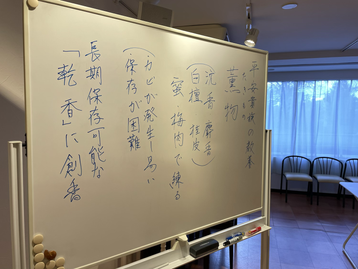 平安貴族の
たきもの
薫物
(沈香 麝香
白檀 桂皮)
蜜・梅肉で練る
(カビが発生し易い
保存が困難)
長期保存可能な
「乾香」に創香